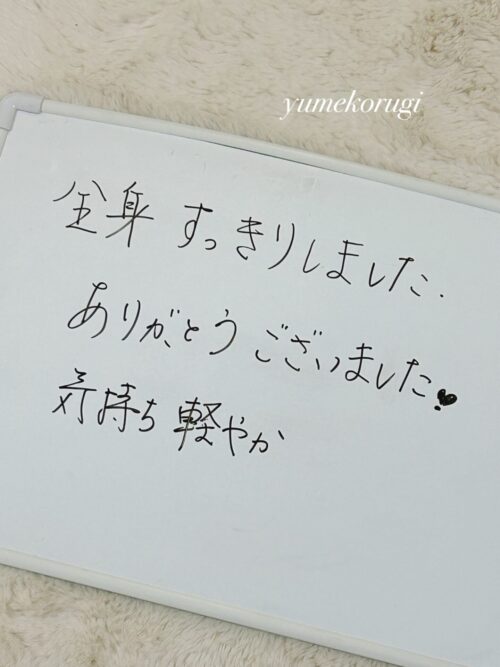 yumekorugi
全身 すっきりしました.
ありがとう ございました♥
気持ち 軽やか